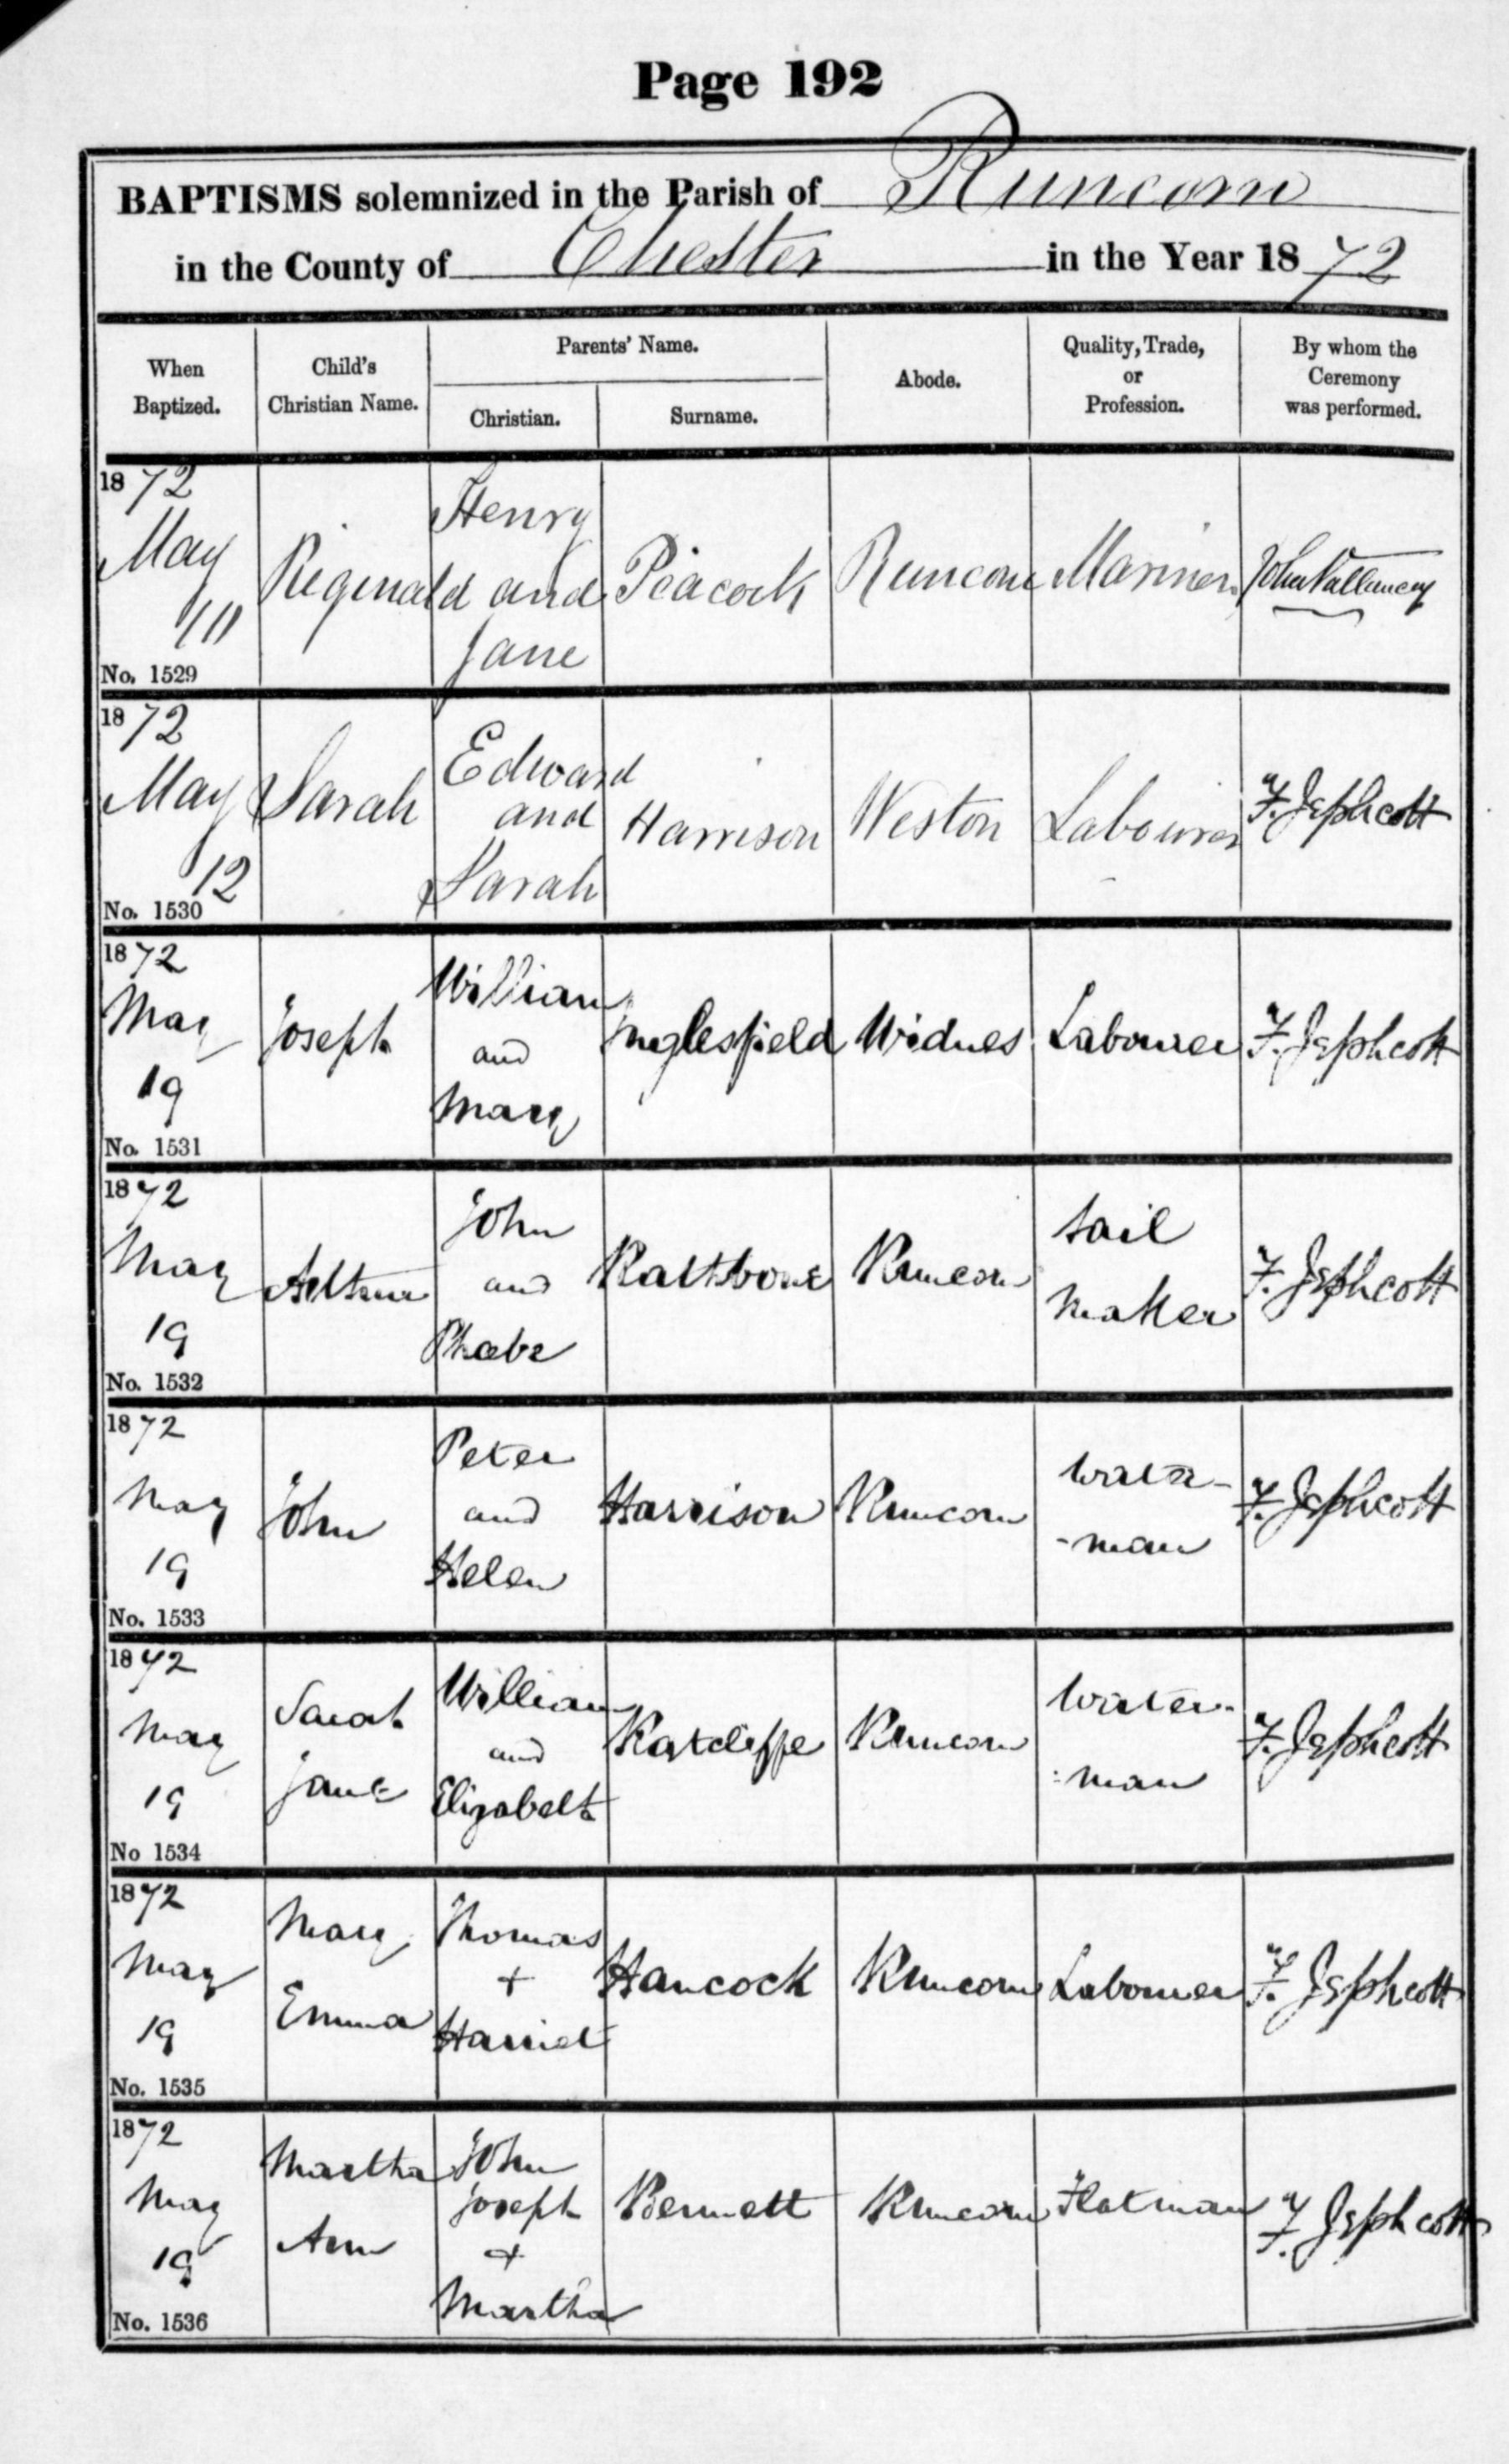 Page 192
BAPTISMS solemnized in the Parish of Runcorn
in the County of Chester in the Year 1872
When Baptized. Child's Christian Name. Parents' Name. Abode. Quality, Trade, or Profession. By whom the Ceremony was performed.
Christian. Surname.
1872
May
No. 1529
Reginald
Henry
and
Jane
Peacock
Runcorn
Mariner
John Vallancey
1872
May
12
No. 1530
Sarah
Edward
and
Sarah
Harrison
Weston
Labourer
F. Jephcott
1872
May
19
No. 1531
Joseph
William
and
Mary
Inglesfield
Widnes
Labourer
F. Jephcott
1872
May
19
No. 1532
Arthur
John
and
Phoebe
Rathbone
Runcorn
Sail
Maker
F. Jephcott
1872
May
19
No. 1533
John
Peter
and
Helen
Harrison
Runcorn
Water-
-man
F. Jephcott
1872
May
19
No 1534
Sarah
Jane
William
and
Elizabeth
Ratcliffe
Runcorn
Water-
=man
F. Jephcott
1872
May
19
No. 1535
Mary
Emma
Thomas
+
Harriet
Hancock
Runcorn
Labourer
F. Jephcott
1872
May
19
No. 1536
Martha
Ann
John
Joseph
+
Martha
Bennett
Runcorn
Flatman
F. Jephcott